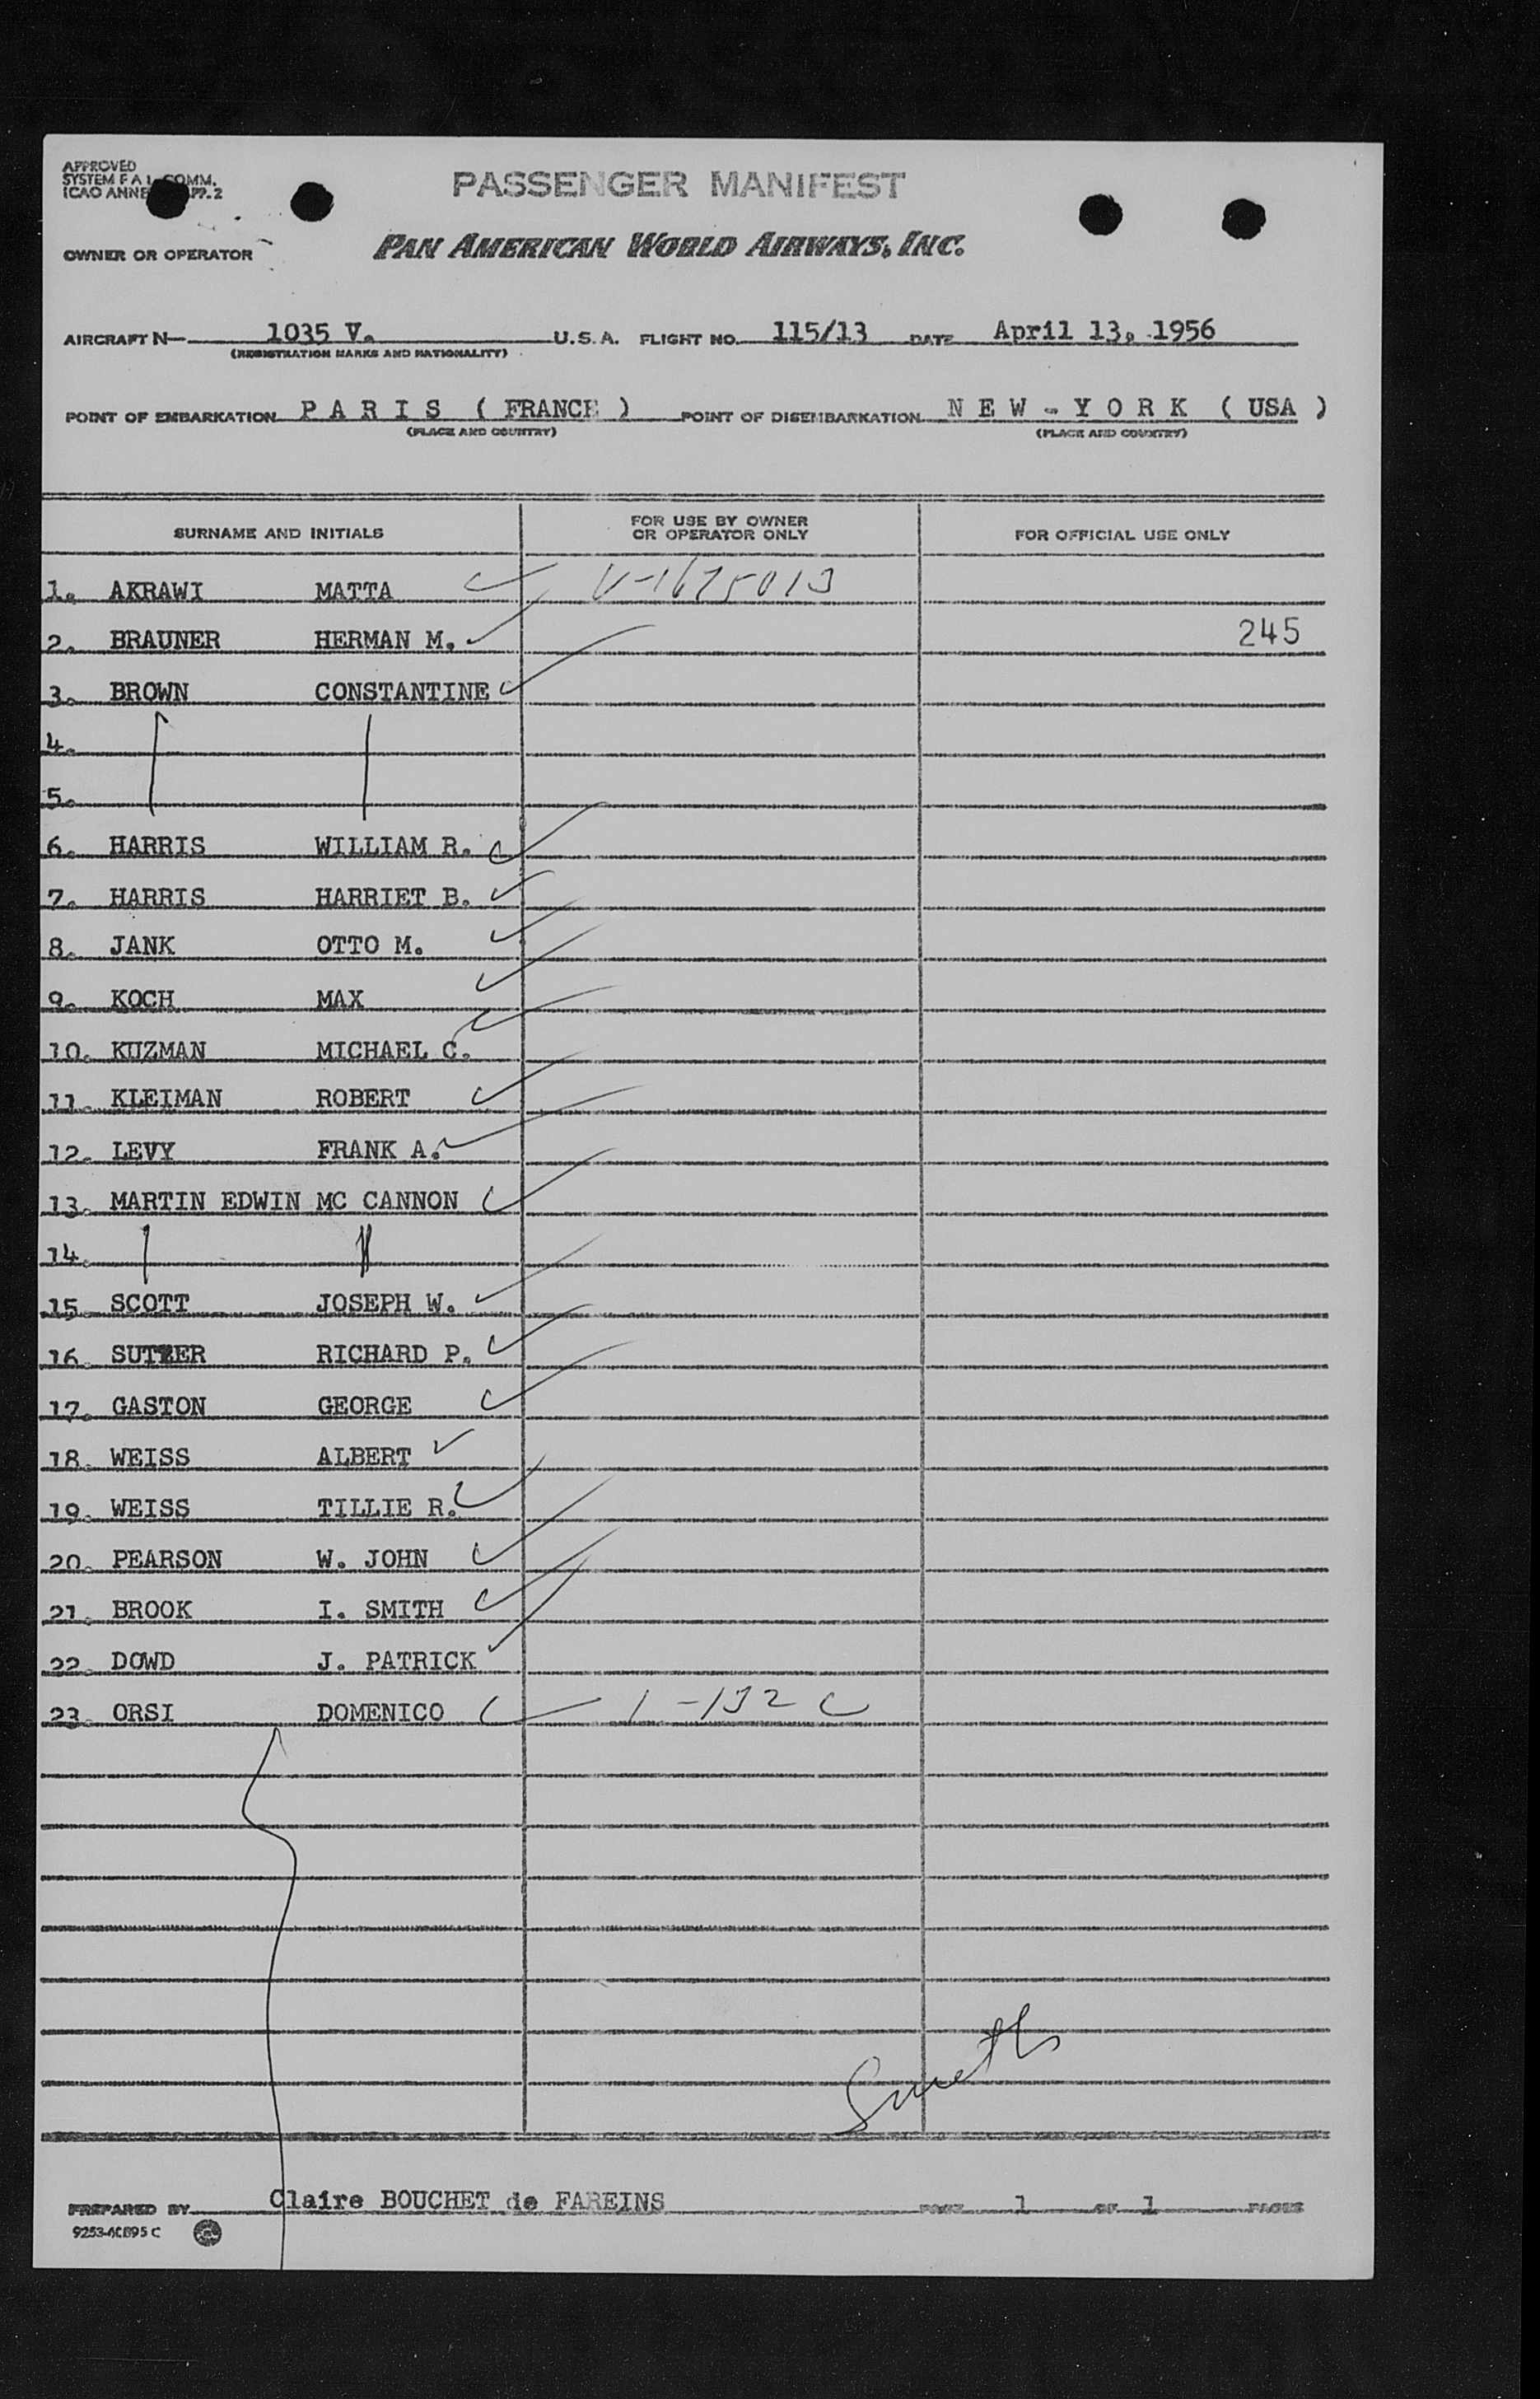 APPROVED
SYSTEM F A L COMM.
ICAO ANNE P.2
PASSENGER MANIFEST
OWNER OR OPERATOR PAN AMERICAN WORLD AIRWAYS, INC.
AIRCRAFT N— 1035 V. U.S.A. FLIGHT NO. 115/13 DATE April 13, 1956
(REGISTRATION MARKS AND NATIONALITY)
POINT OF EMBARKATION P A R I S ( FRANCE ) POINT OF DISEMBARKATION N E W - Y O R K ( USA )
(PLACE AND COUNTRY) (PLACE AND COUNTRY)
SURNAME AND INITIALS FOR USE BY OWNER OR OPERATOR ONLY FOR OFFICIAL USE ONLY
1. AKRAWI MATTA ✓ V-1675013
2. BRAUNER HERMAN M. ✓ 245
3. BROWN CONSTANTINE ✓
4.
5.
6. HARRIS WILLIAM R. ✓
7. HARRIS HARRIET B. ✓
8. JANK OTTO M. ✓
9. KOCH MAX ✓
10. KUZMAN MICHAEL C. ✓
11. KLEIMAN ROBERT ✓
12. LEVY FRANK A. ✓
13. MARTIN EDWIN MC CANNON ✓
14.
15 SCOTT JOSEPH W. ✓
16. SUTZER RICHARD P. ✓
17. GASTON GEORGE ✓
18. WEISS ALBERT ✓
19. WEISS TILLIE R. ✓
20. PEARSON W. JOHN ✓
21. BROOK I. SMITH ✓
22. DOWD J. PATRICK ✓
23. ORSI DOMENICO ✓ 1-132 C
PREPARED BY Claire BOUCHET de FAREINS PAGE 1 OF 1 PAGES